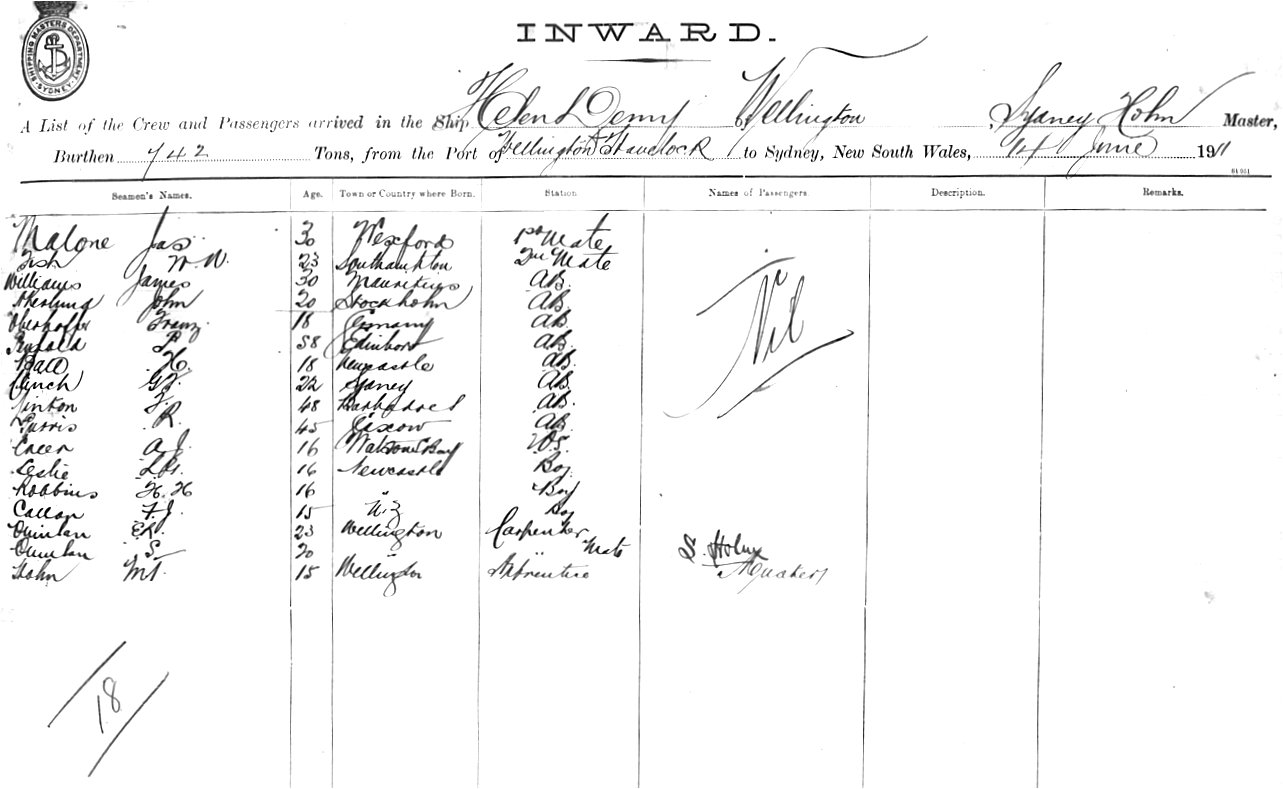 SHIPPING MASTERS DEPARTMENT
SYDNEY
INWARD.
A List of the Crew and Passengers arrived in the Ship Helen Denny Wellington, Sydney Holm Master,
Burthen 742 Tons, from the Port of Wellington & Havelock to Sydney, New South Wales, 14 June 1911
Seamen's Names. Age. Town or Country where Born. Station Names of Passengers. Description. Remarks.
Malone Jas 30 Wexford 1st Mate
Fish W. W. 23 Southamhton 2nd Mate
Williams James 30 Mauritius AB.
John 20 Stockholm AB.
Oberhoffer Franz 18 Germany AB.
P 58 AB.
H. 18 Newcastle AB.
Clinch 22 Sydney AB.
F. 48 AB.
R. 45 AB.
A. J. 16 Watsons Bay O.S.
Leslie 16 Newcastle Boy
Robbins H. H 16 " Boy
Callan F. J. 15 N.Z Boy
Quinlan 23 Wellington Carpenter
Quinlan S 20 " " Mate
Holm 15 Wellington
Nil
S. Holm
18